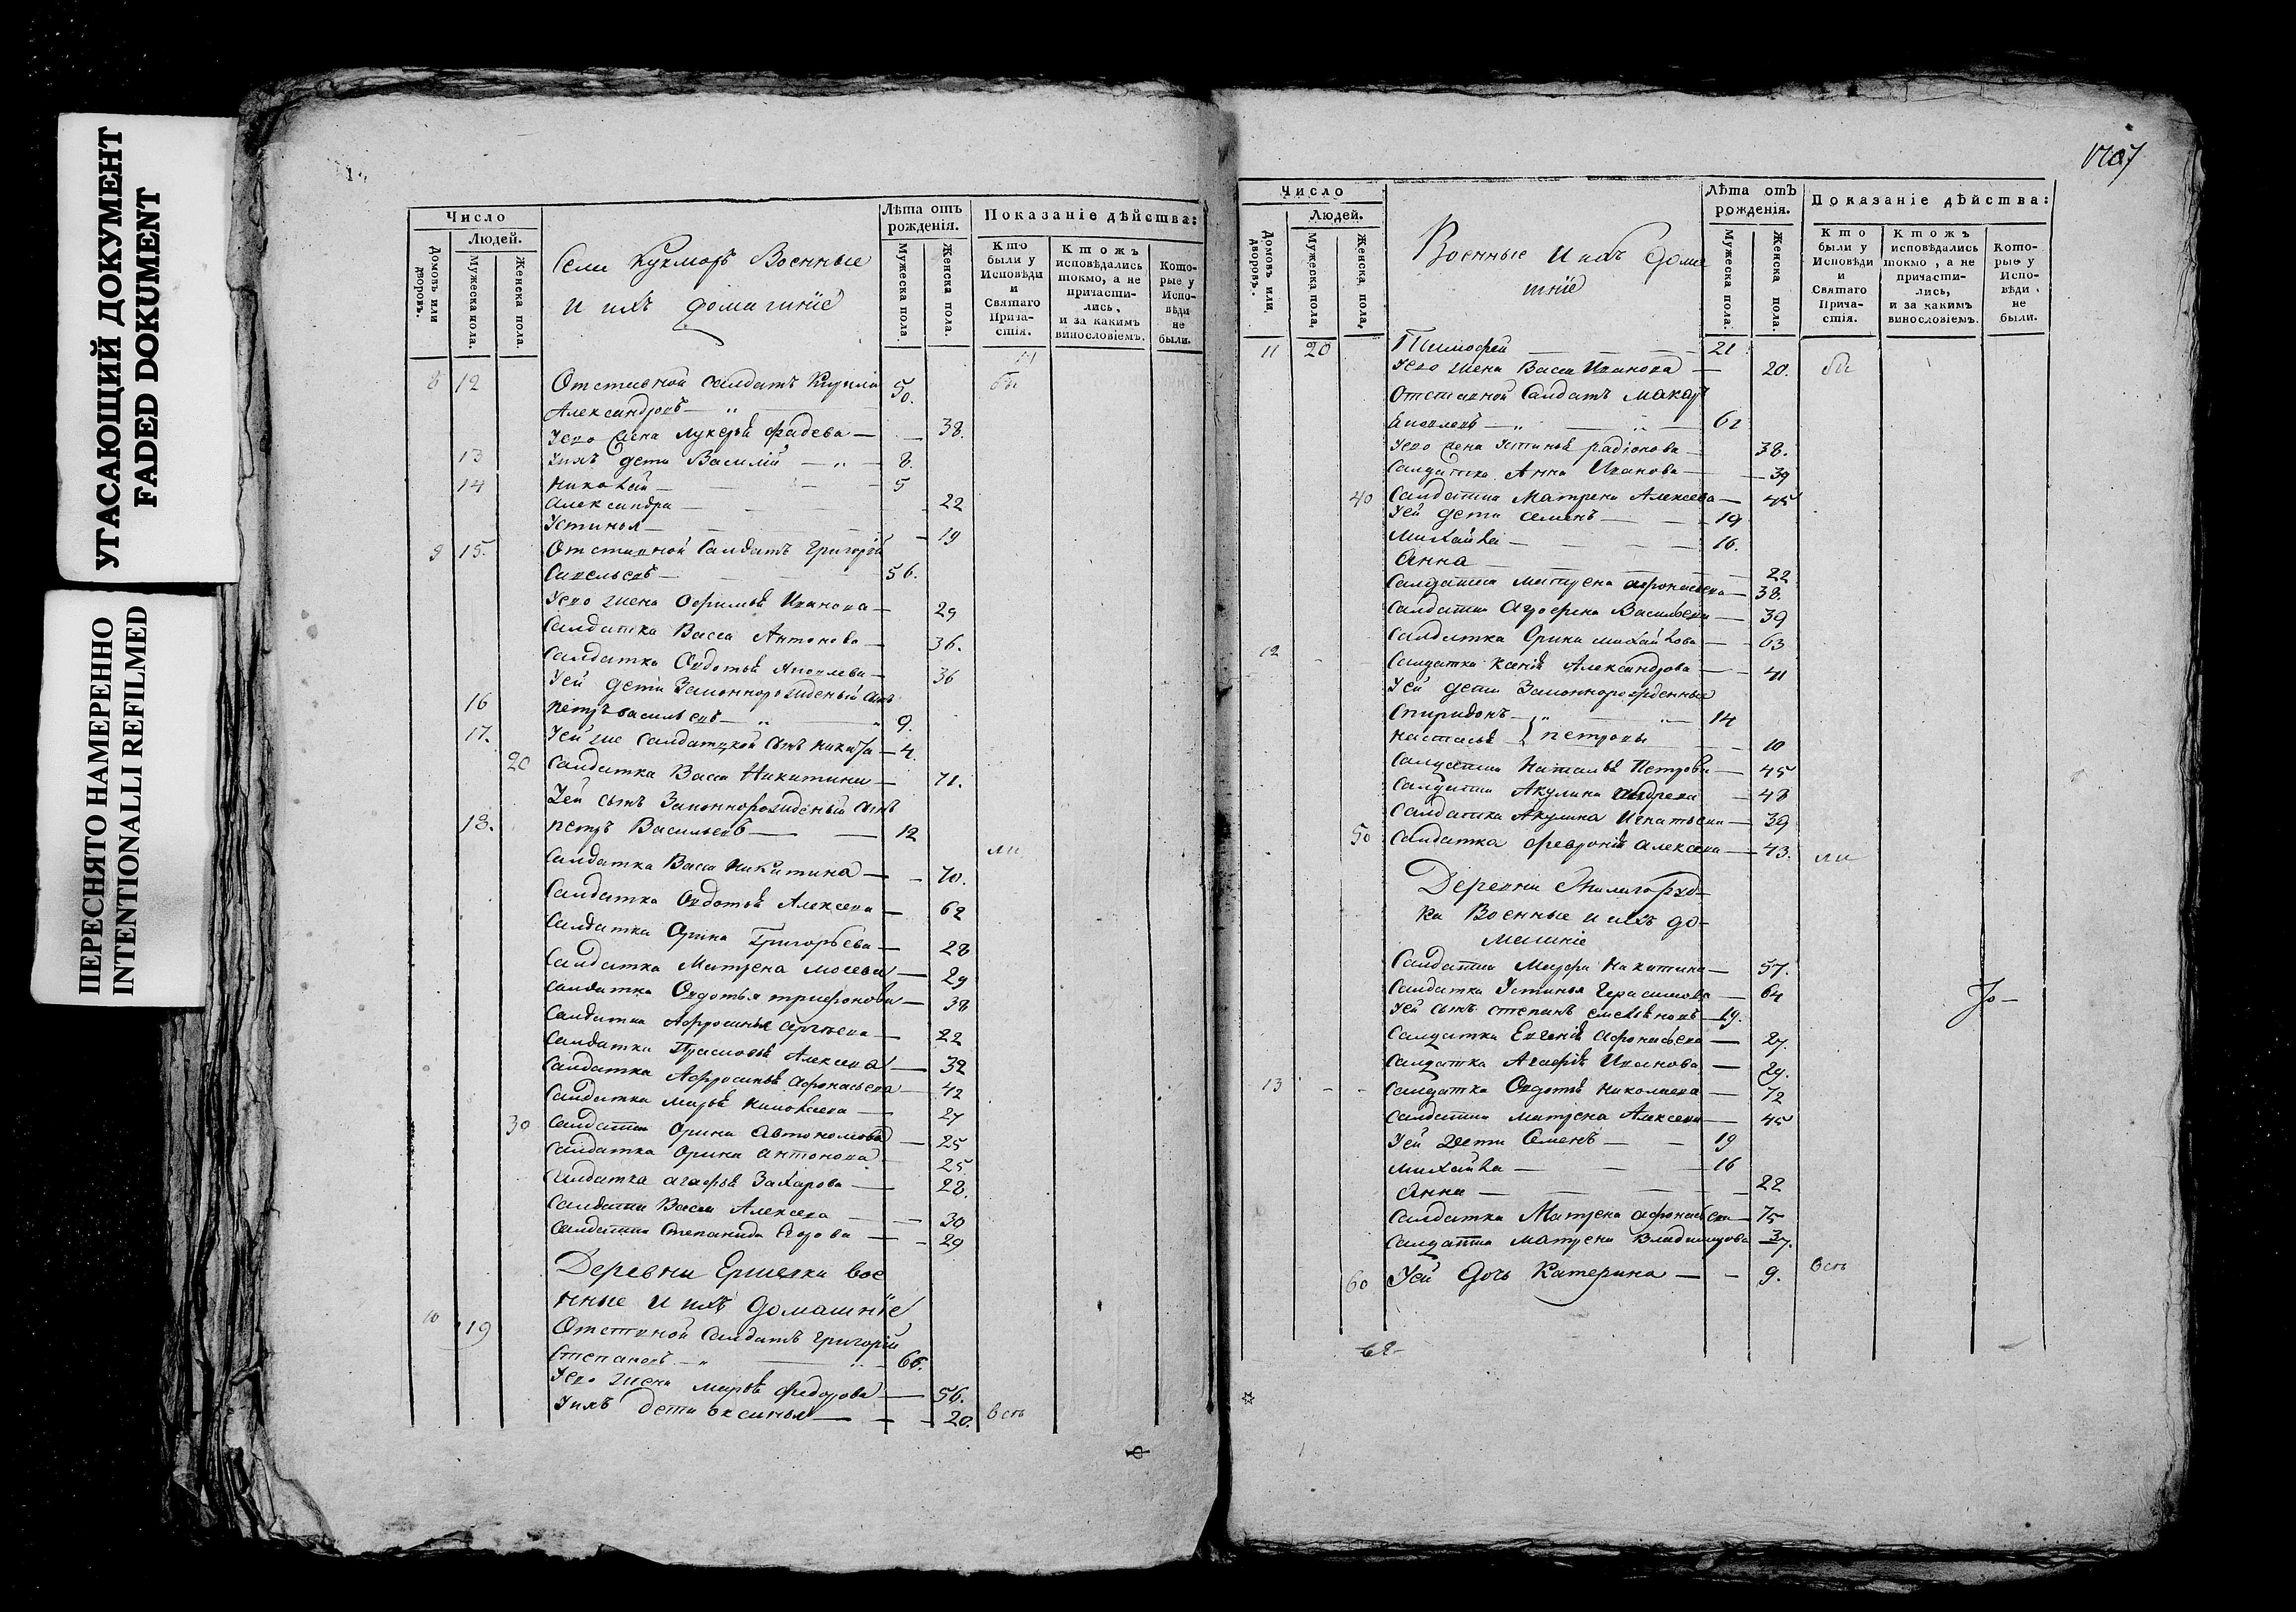 УГАСАЮЩИЙ ДОКУМЕНТ
FADED DOKUMENT
ПЕРЕСНЯТО НАМЕРЕННО
INTENTIONALLI REFILMED
Число
Людей.
Домовъ или дворовъ.
Мужеска пола.
Женска пола.
Села Кукморъ Военные
и ихъ домашніе
Лѣта отъ рожденія.
Мужеска пола
Женска пола.
Показаніе дѣйства:
Кто были у Исповѣди и Святаго Прича- стія.
Ктожъ исповѣдались токмо, а не причасти- лись, и за какимъ винословіемъ.
Кото- рые у Испо- вѣди не были.
8 12 Отставной салдатъ Кирила 50.
Александровъ — „
Уево жена Лукерья Фадеева — 38.
13 Уихъ дети Василій — „ — 8.
14 Николай — 5
Александра — 22
Устинья — 19
9 15. Отставной Салдатъ Григорій
Савельевъ — 56.
Уево жена Офимья Иванова — 29
Салдатка Васса Антонова — 36.
Салдатка Овдотья Яковлева — 36
Уей дети Законнорожденый сынъ
16 петръ васильевъ — „ 9.
17. Уей же Салдатской сынъ никита — 4.
20 Салдатка Васса Никитина — 71.
Уей сынъ Законнорожденый сынъ
18. петръ Васильевъ — 12
Салдатка Васса Никитина — 70.
Салдатка Овдотья Алексева — 62
Салдатка Орина Григорьева — 28
Салдатка Матрена мосева — 29
Салдатка Овдотья трифонова — 38
Салдатка Афросинья — 22
Салдатка Прасковья Алексева — 32
Салдатка Афросинья Афонасьева — 42
Салдатка марья николаева — 27
30 Салдатка Орина Автономова — 25
Салдатка Орина антонова 25
Салдатка агафья Захарова — 28.
Салдатка Васса Алексева — 30
Салдатка Степанида Егорова — 29
Деревни Ермелки вое
нные и ихъ домашніе
10 19 Отставной Салдатъ григорій
Степановъ — „ 66.
Уево жена марья федорова — 56.
Уихъ дети оксинья — 20.
1707
Число
Людей.
Домовъ или дворовъ.
Мужеска пола,
Женска пола,
Военные и ихъ дома
шніе
Лѣта отъ рожденія.
Мужеска пола.
Женска пола.
Показаніе дѣйства:
Кто были у Исповѣди и Святаго Прича- стія.
Ктожъ исповѣдались токмо, а не причасти- лись, и за какимъ винословіемъ.
Кото- рые у Испо- вѣди не были.
11 20 Тимофей — 21
Уево жена Васса Иванова — 20.
Отставной Салдатъ макар
Яковлевъ — „ 62
Уево жена Устинья радіонова 38.
Салдатка Анна Иванова — 39
40 Салдатка Матрена Алексева — 45
Уей дети семенъ — 19
михайла — 16.
Анна — 22
Салдатка матрена афонасьева — 38.
Салдатка Аграфена Васильева — 39
Салдатка Орина михайлова — 63
12 Салдатка ксенія Александрова — 41
Уей дети Законнорожденные
Спиридонъ — „ — 14
настасья } петровы 10
Салдатка наталья Петрова — 45
Салдатка Акулина андреева — 48
Салдатка Акулина Игнатьева — 39
50 Салдатка февронія алексева — 43.
Деревни
ка Военные и ихъ до-
машніе
Салдатка Марфа никитина — 57.
Салдатка Устинья Герасимова — 64
Уей сынъ степанъ — 19.
Салдатка Евгенія Афонасьева — 27.
Салдатка Агафія Иванова — 29.
13 Салдатка Овдотья николаева — 72
Салдатка матрена Алексева — 45
Уей дети Семенъ — 19
михайла — 16
Анна — 22
Салдатка Матрена афонасьева — 75
Салдатка матрена Владимирова 37.
60 Уей дочь Катерина — 9.